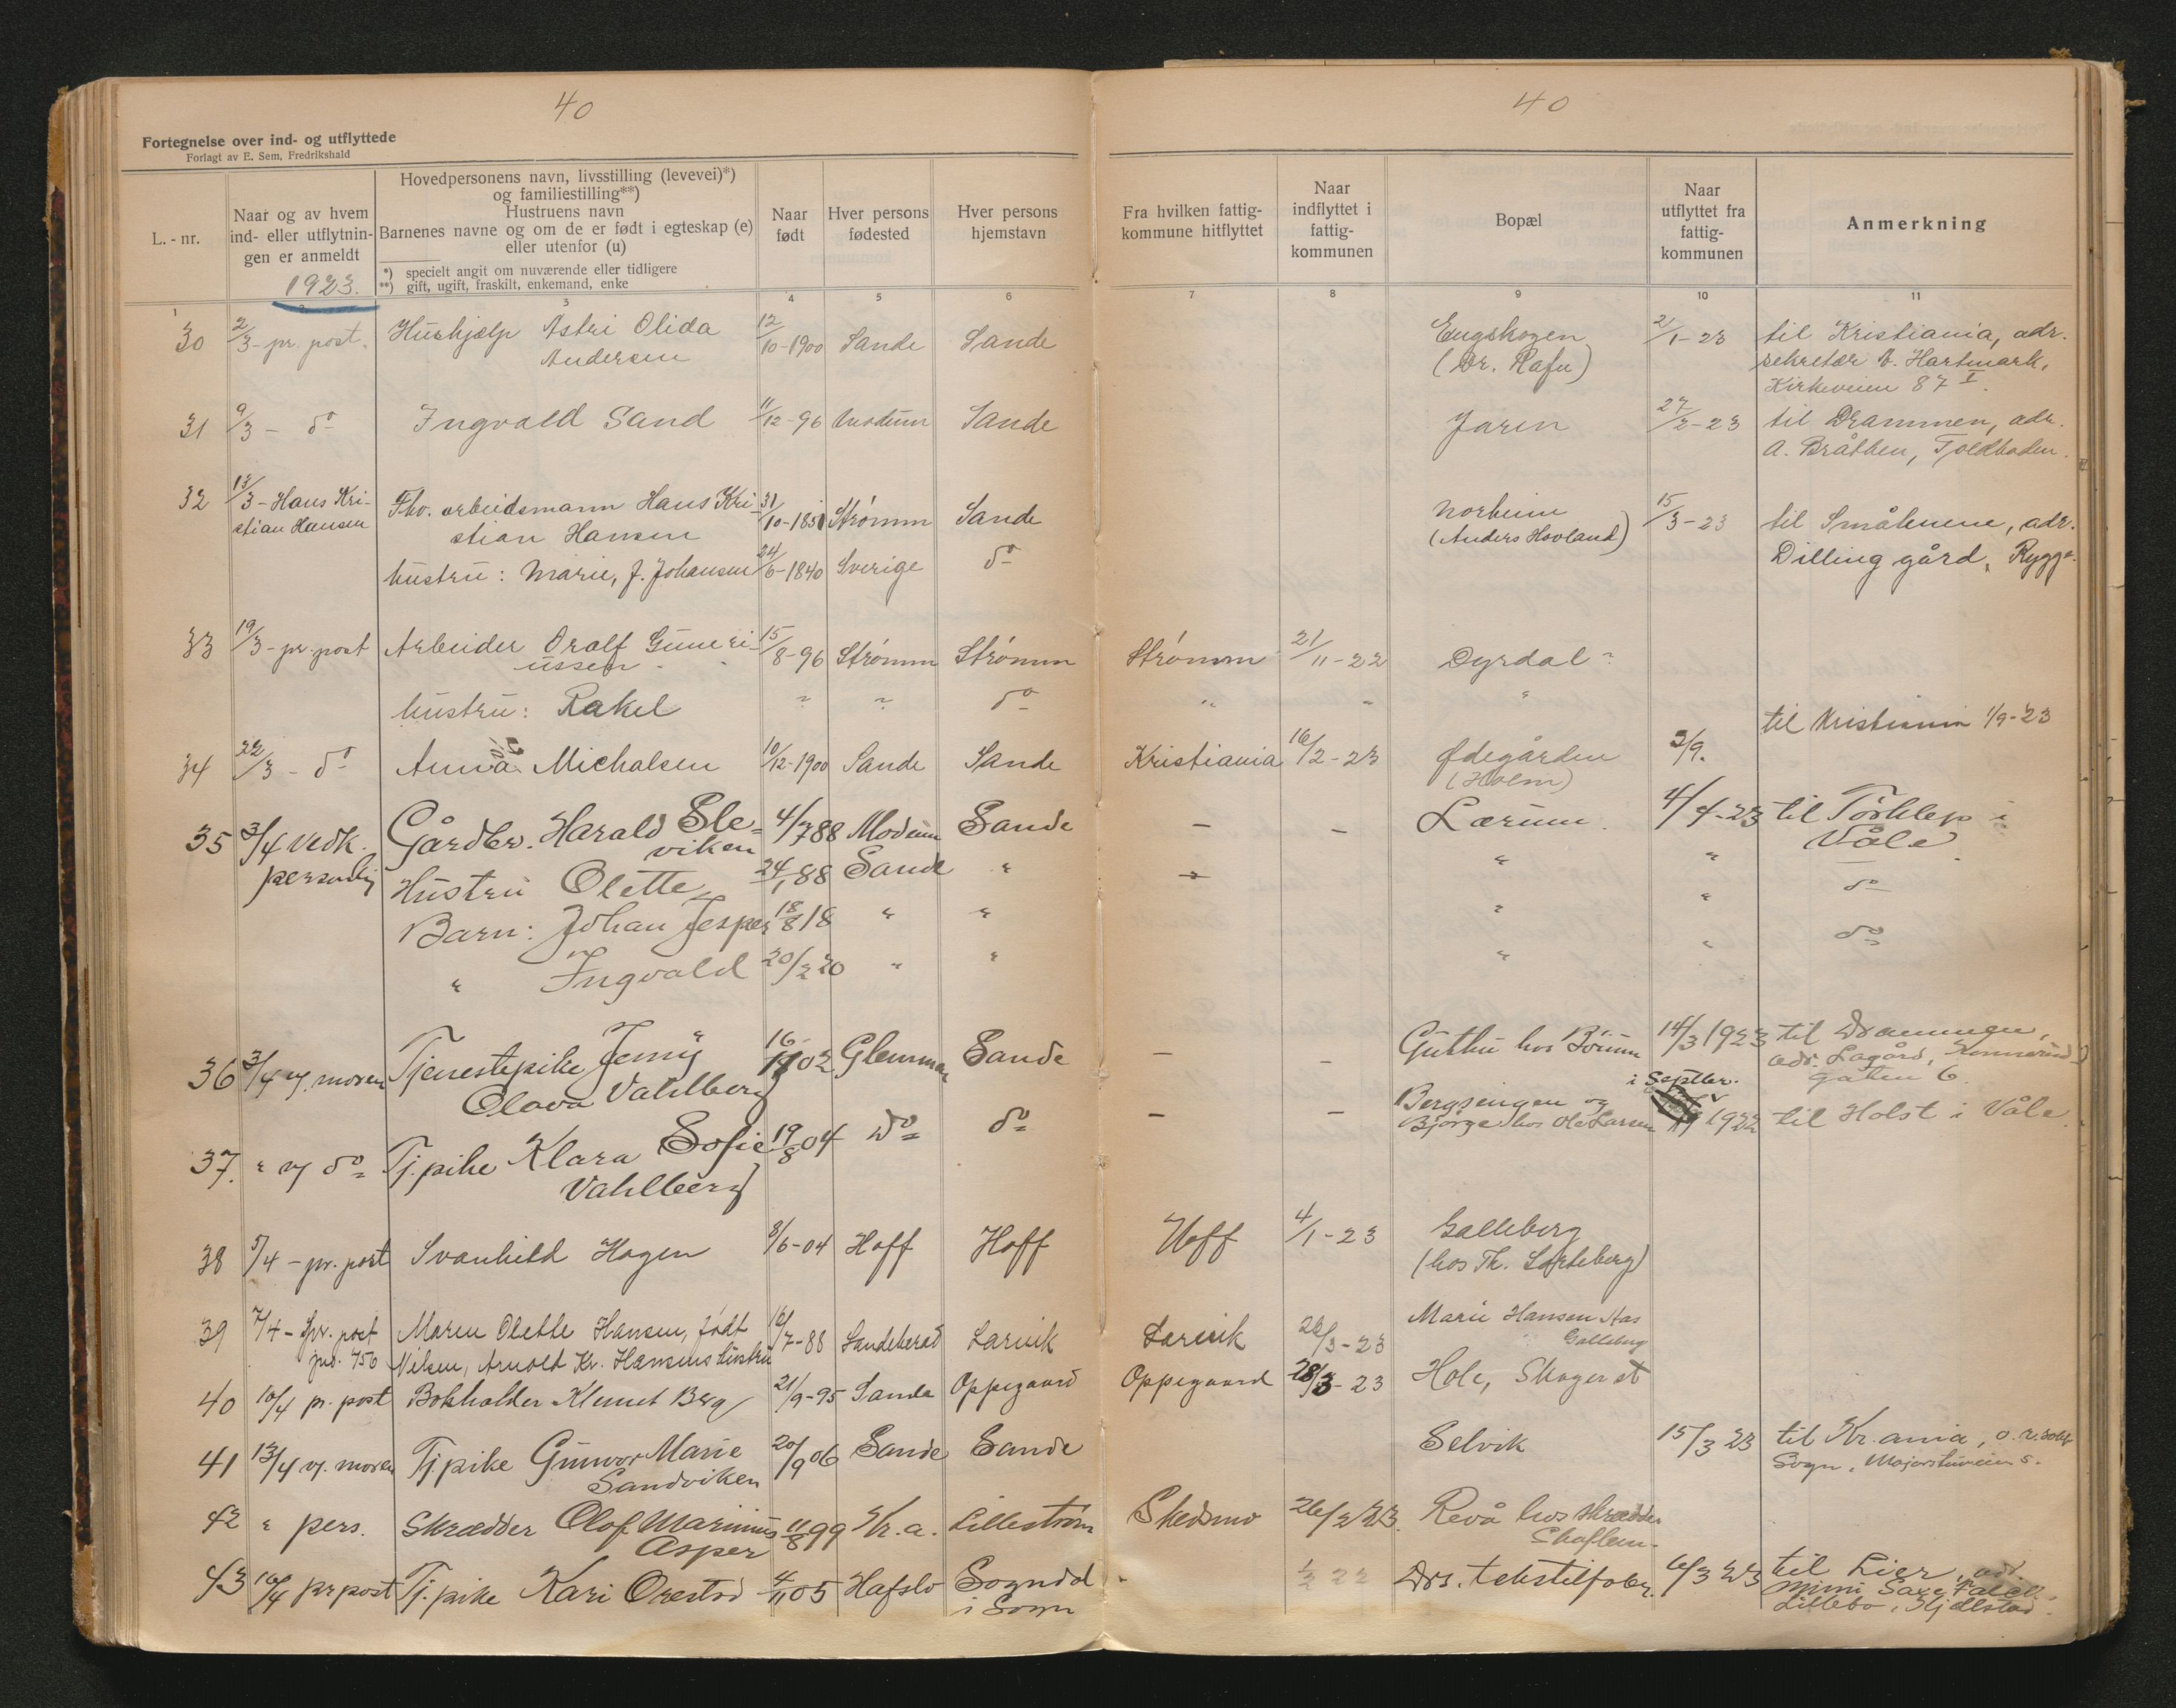 40
40
Fortegnelse over ind- og utflyttede
Forlagt av E. Sem, Fredrikshald
L. - nr.
Naar og av hvem
ind- eller utflytnin-
gen er anmeldt
1923.
Hovedpersonens navn, livsstilling (levevei)*)
og familiestilling**)
Hustruens navn
Barnenes navne og om de er født i egteskap (e)
eller utenfor (u)
*) specielt angit om nuværende eller tidligere
**) gift, ugift, fraskilt, enkemand, enke
Naar
født
Hver persons
fødested
Hver persons
hjemstavn
Fra hvilken fattig-
kommune hitflyttet
Naar
indflyttet i
fattig-
kommunen
Bopæl
Naar
utflyttet fra
fattig-
kommunen
Anmerkning
1 2 3 4 5 6 7 8 9 10 11
30 2/3 - pr. post. Hushjælp Astri Olida 12/10-1900 Sande Sande Engskogen 2/1-23 til Kristiania, adr.
Andersen (Dr. Rafn) sekretær V. Hartmark,
Kirkeveien 87 I.
31 9/3 - do Ingvald Sand 11/12-96 Modum Sande Jaren 27/2-23 til Drammen, adr.
A. Bråthen, Toldboden.
32 13/3 - Hans Kri- Fhv. arbeidsmann Hans Kri- 31/10-1851 Strømm Sande Norheim 15/3-23 til Småhuene, adr.
stian Hansen stian Hansen (Anders Hovland) Dilling gård, Rygge.
hustru: Marie, f. Johansen 24/6-1840 Sverige do
33 19/3 - pr. post Arbeider Oralf Guneri- 15/8-96 Strømm Strømm Strømm 21/11-22 Dyrdal
ussen
hustru: Rakel " " do " " "
til Kristiania 1/9-23
34 22/3 - do Anna Michalsen 10/12-1900 Sande Sande Kristiania 16/2-23 Ødegården 3/9.
(Holm)
35 3/4 vedk. Gårdbr. Harald Sle- 4/7 88 Modum Sande - - Lærum 4/4-23 til Tørklep i
personlig viken Våle
Hustru Olette 24/1 88 Sande " - " " do
Barn: Johan Jesper 18/8 18 " " " " do
" Ingvald 20/2 20 " " " "
36 3/4 v. moren Tjenestepike Jenny 16/11 02 Glemmen Sande - - Guthu hos Börum 14/3 1923 til Drammen,
Olava Vahlberg adr. Lagård, Konnerud
gaten 6.
37. " v do Tj.pike Klara Sofie 19/8 04 Do do - - Bergsengen og i Septbr. 1922 til Holst i Våle
Vahlberg Bjørge hos Ole Larsen
38 5/4 - pr. post Svanhild Hagen 8/6-04 Hoff Hoff Hoff 4/1-23 Galleberg
(hos Th. Sørteberg)
39 7/4 - pr. post Maren Olette Hansen, født 16/7-88 Sandeherad Larvik Larvik 26/3-23 Marie Hansen Aas
jnr. 456 Nilsen, Arnold Kr. Hansens hustru Galleberg
40 10/4 pr. post Bokholder Klemet Berg 21/9-95 Sande Oppegaard Oppegaard 28/3-23 Hole, Skoger st
41 13/4 v. moren Tj.pike Gunvor Marie 20/9 06 Sande Sande Selvik 15/3 23 til Kr.ania, o.r.sakf
Sandviken Sogn, Majorstuveien 5.
42 " pers. Skrædder Olof Marinius 11/8 99 Kr.a. Lillestrøm Skedsmo 26/2 23. Revå hos skrædder
Asper
43 16/4 pr post Tj.pike Kari Orestad 4/11 05 Hafslo Sogndal - 1/2 22 Drs. tekstilfabr. 6/3 23 til Lier, adr.
i Sogn Mimi
Lillebo, Kjellstad.